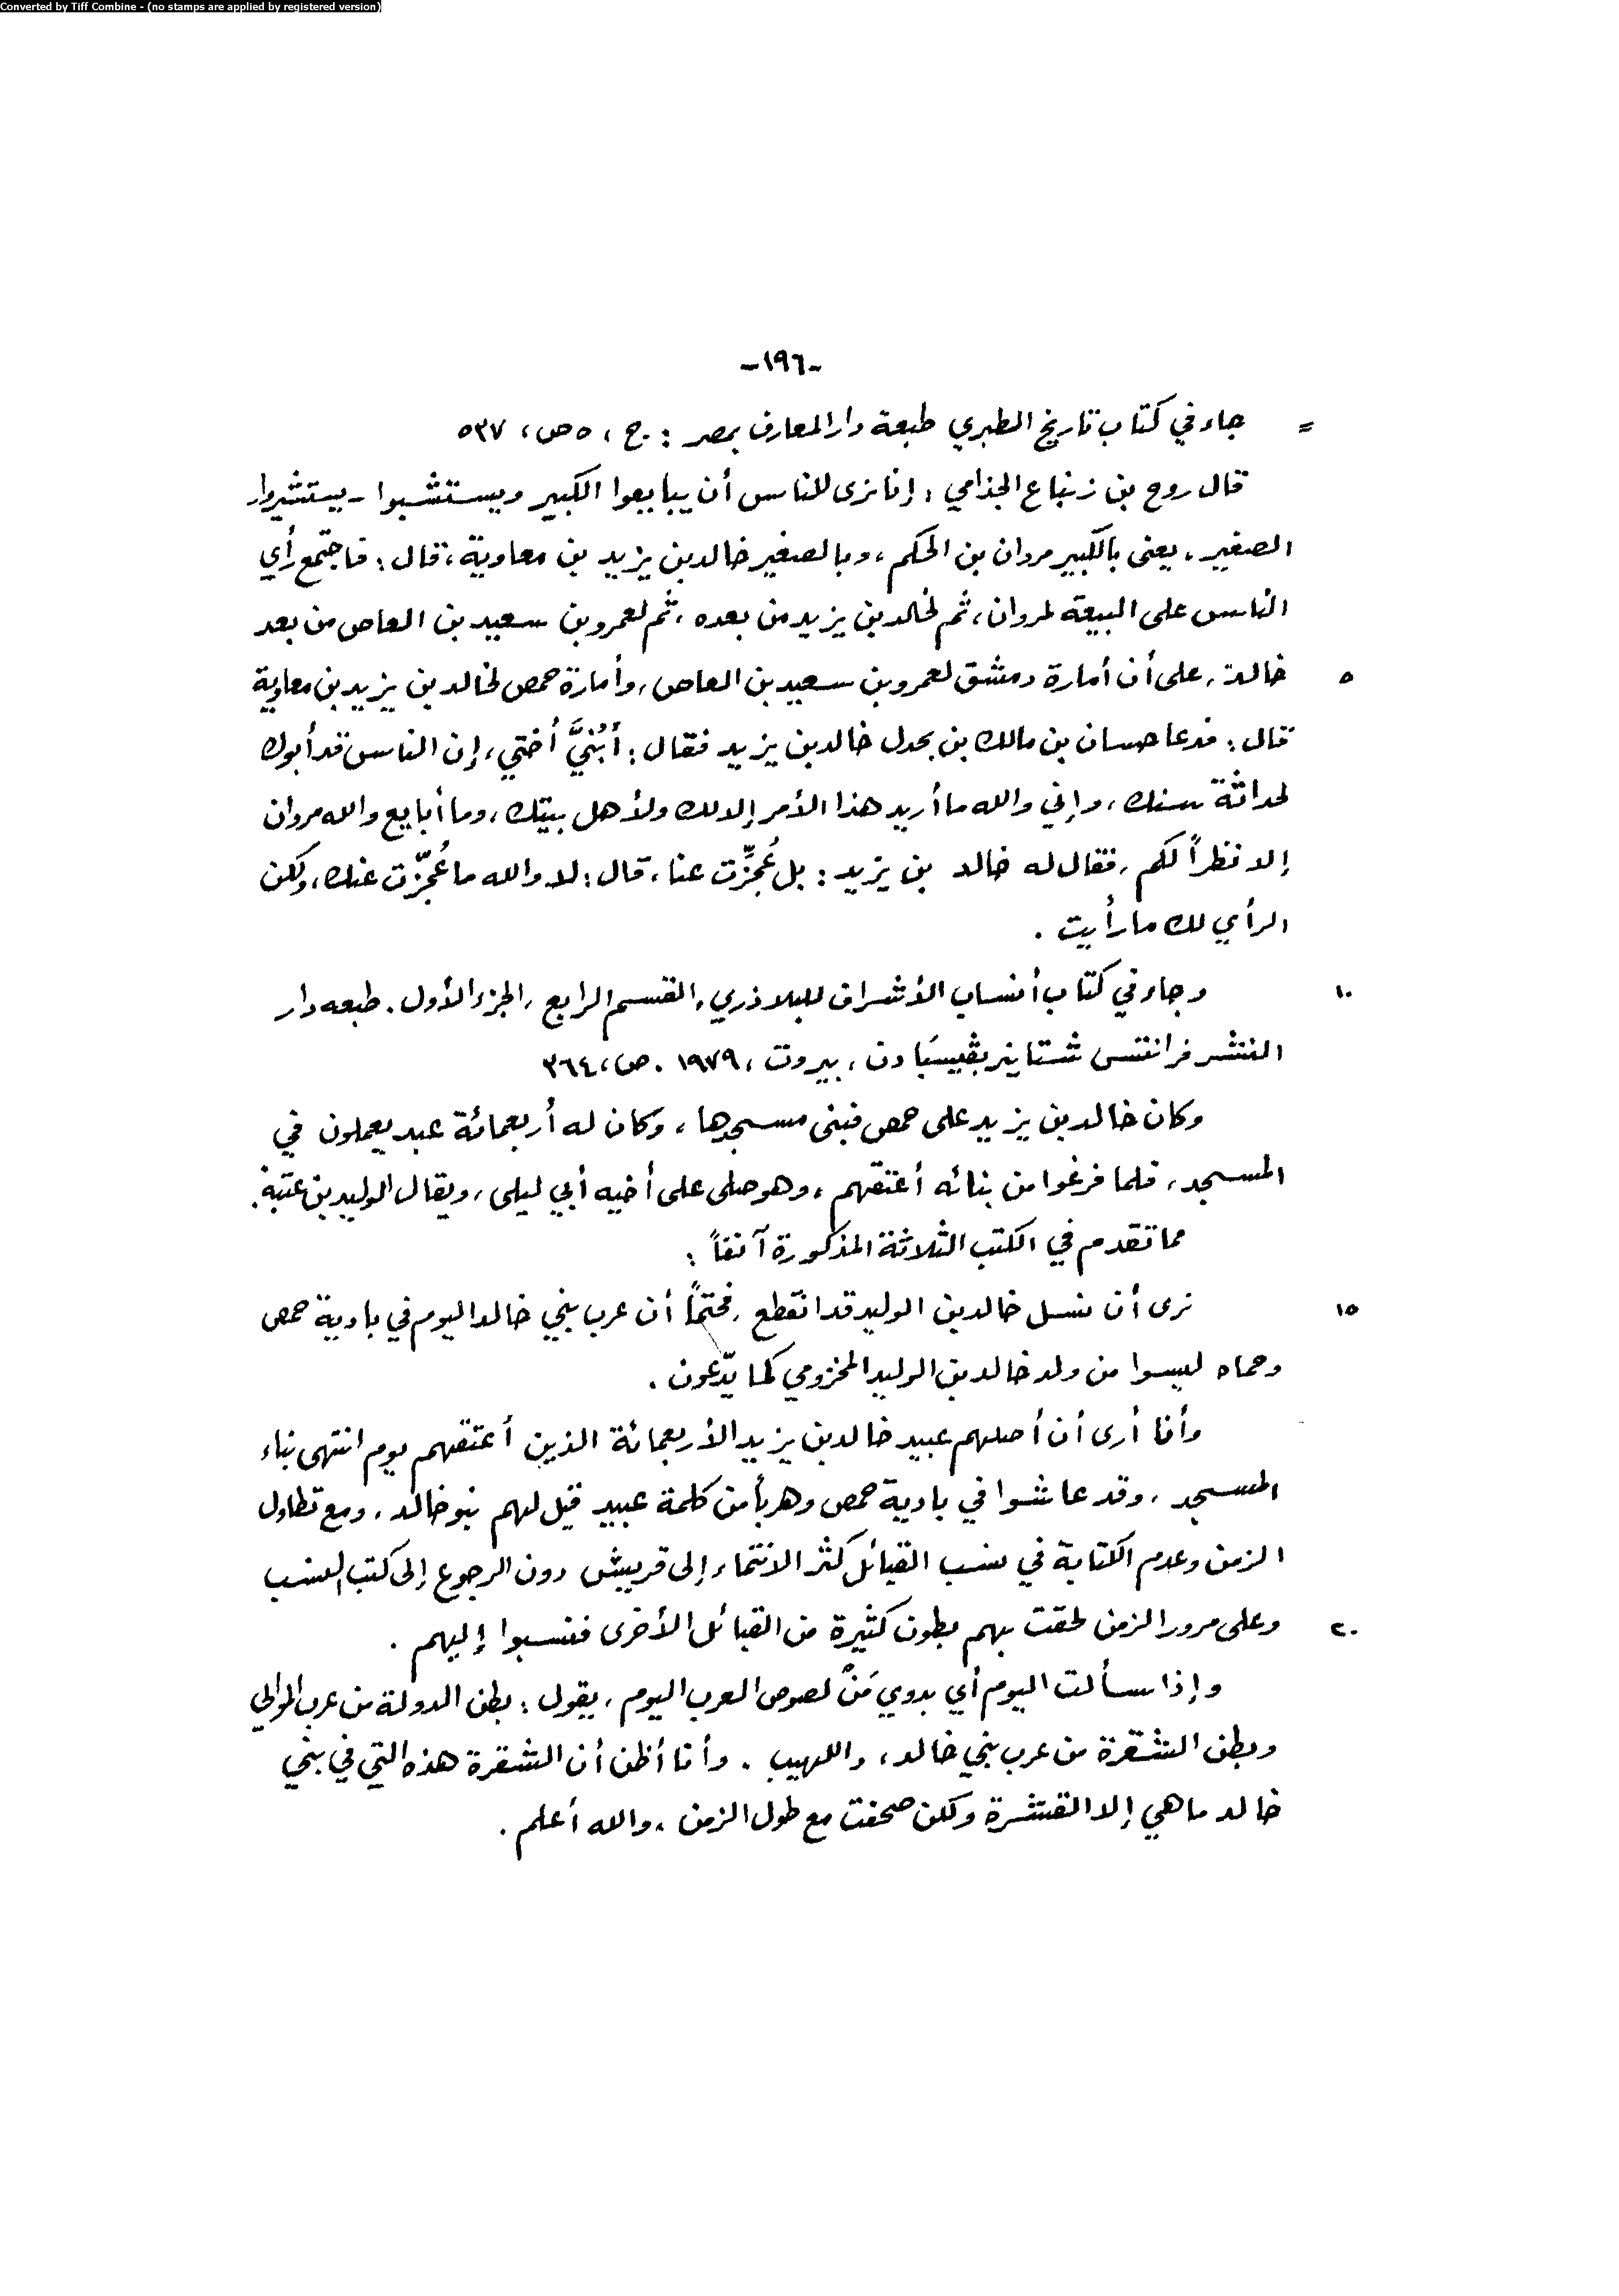 Converted by Tiff Combine - (no stamps are applied by registered version)
-١٩٦-
= جاء في كتاب تاريخ الطبري طبعة دار المعارف بمصر : ج ، ٥ ص ، ٥٣٧
قال روح بن زنباع الجذامي : إنا نرى للناس أن يبايعوا الكبير ويستشبوا - يستشيروا -
الصغير ، يعني بالكبير مروان بن الحكم ، وبالصغير خالد بن يزيد بن معاوية ، قال : فاجتمع رأي
الناس على البيعة لمروان ، ثم لخالد بن يزيد من بعده ، ثم لعمرو بن سعيد بن العاص من بعد
٥ خالد ، على أن أمارة دمشق لعمرو بن سعيد بن العاص ، وأمارة حمص لخالد بن يزيد بن معاوية
قال : فدعا حسان بن مالك بن بحدل خالد بن يزيد فقال : أبُنَيَّ أختي ، إن الناس قد أبوك
لحداثة سنك ، وإني والله ما أريد هذا الأمر إلا لك ولأهل بيتك ، وما أبايع والله مروان
إلا نظراً لكم ، فقال له خالد بن يزيد : بل عُجِّزت عنا ، قال : لا والله ما عُجِّزت عنك ، ولكن
الرأي لك ما رأيت .
١٠ وجاء في كتاب أنساب الأشراف للبلاذري ، القسم الرابع ، الجزء الأول . طبعه دار
النشر فرانتس شتاينر بڤيسبَادن ، بيروت ، ١٩٧٩ . ص ، ٣٦٤
وكان خالد بن يزيد على حمص فبنى مسجدها ، وكان له أربعمائة عبد يعملون في
المسجد ، فلما فرغوا من بنائه أعتقهم ، وهو صلى على أخيه أبي ليلى ، ويقال الوليد بن عتبة .
مما تقدم في الكتب الثلاثة المذكورة آنفاً :
١٥ نرى أن نسل خالد بن الوليد قد انقطع ، فحتماً أن عرب بني خالد اليوم في بادية حمص
وحماه ليسوا من ولد خالد بن الوليد المخزومي كما يدّعون .
وأنا أرى أن أصلهم عبيد خالد بن يزيد الأربعمائة الذين أعتقهم يوم انتهى بناء
المسجد ، وقد عاشوا في بادية حمص وهرباً من كلمة عبيد قيل لهم بنو خالد ، ومع تطاول
الزمن وعدم الكتابة في نسب القبائل كثر الانتماء إلى قريش دون الرجوع إلى كتب النسب
٢٠ وعلى مرور الزمن لحقت بهم بطون كثيرة من القبائل الأخرى فنسبوا إليهم .
وإذا سألت اليوم أي بدوي مَنْ لصوص العرب اليوم ، يقول : بطن الدولة من عرب الموالي
وبطن الشقرة من عرب بني خالد ، واللهيب . وأنا أظن أن الشقرة هذه التي في بني
خالد ما هي إلا القشرة ولكن صحفت مع طول الزمن ، والله أعلم .